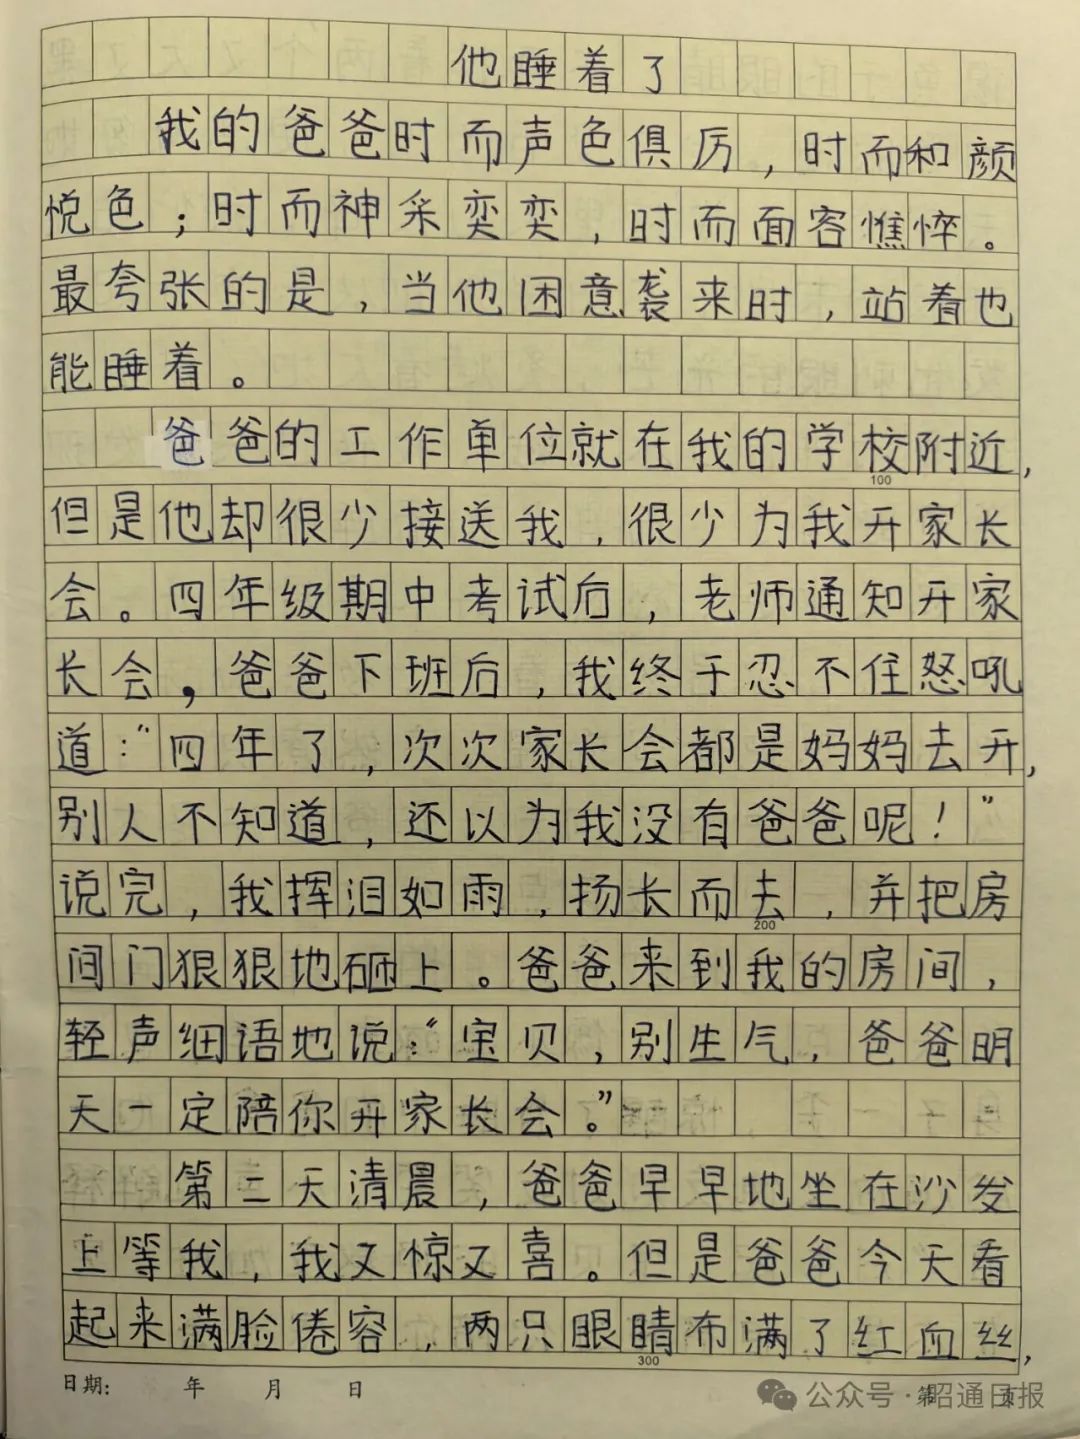 他睡着了
我的爸爸时而声色俱厉，时而和颜
悦色；时而神采奕奕，时而面容憔悴。
最夸张的是，当他困意袭来时，站着也
能睡着。
爸爸的工作单位就在我的学校附近，
100
但是他却很少接送我，很少为我开家长
会。四年级期中考试后，老师通知开家
长会，爸爸下班后，我终于忍不住怒吼
道："四年了，次次家长会都是妈妈去开，
别人不知道，还以为我没有爸爸呢！"
说完，我挥泪如雨，扬长而去，并把房
200
间门狠狠地砸上。爸爸来到我的房间，
轻声细语地说："宝贝，别生气，爸爸明
天一定陪你开家长会。"
第二天清晨，爸爸早早地坐在沙发
上等我，我又惊又喜。但是爸爸今天看
起来满脸倦容，两只眼睛布满了红血丝，
300
日期： 年 月 日
第 页
公众号·昭通日报